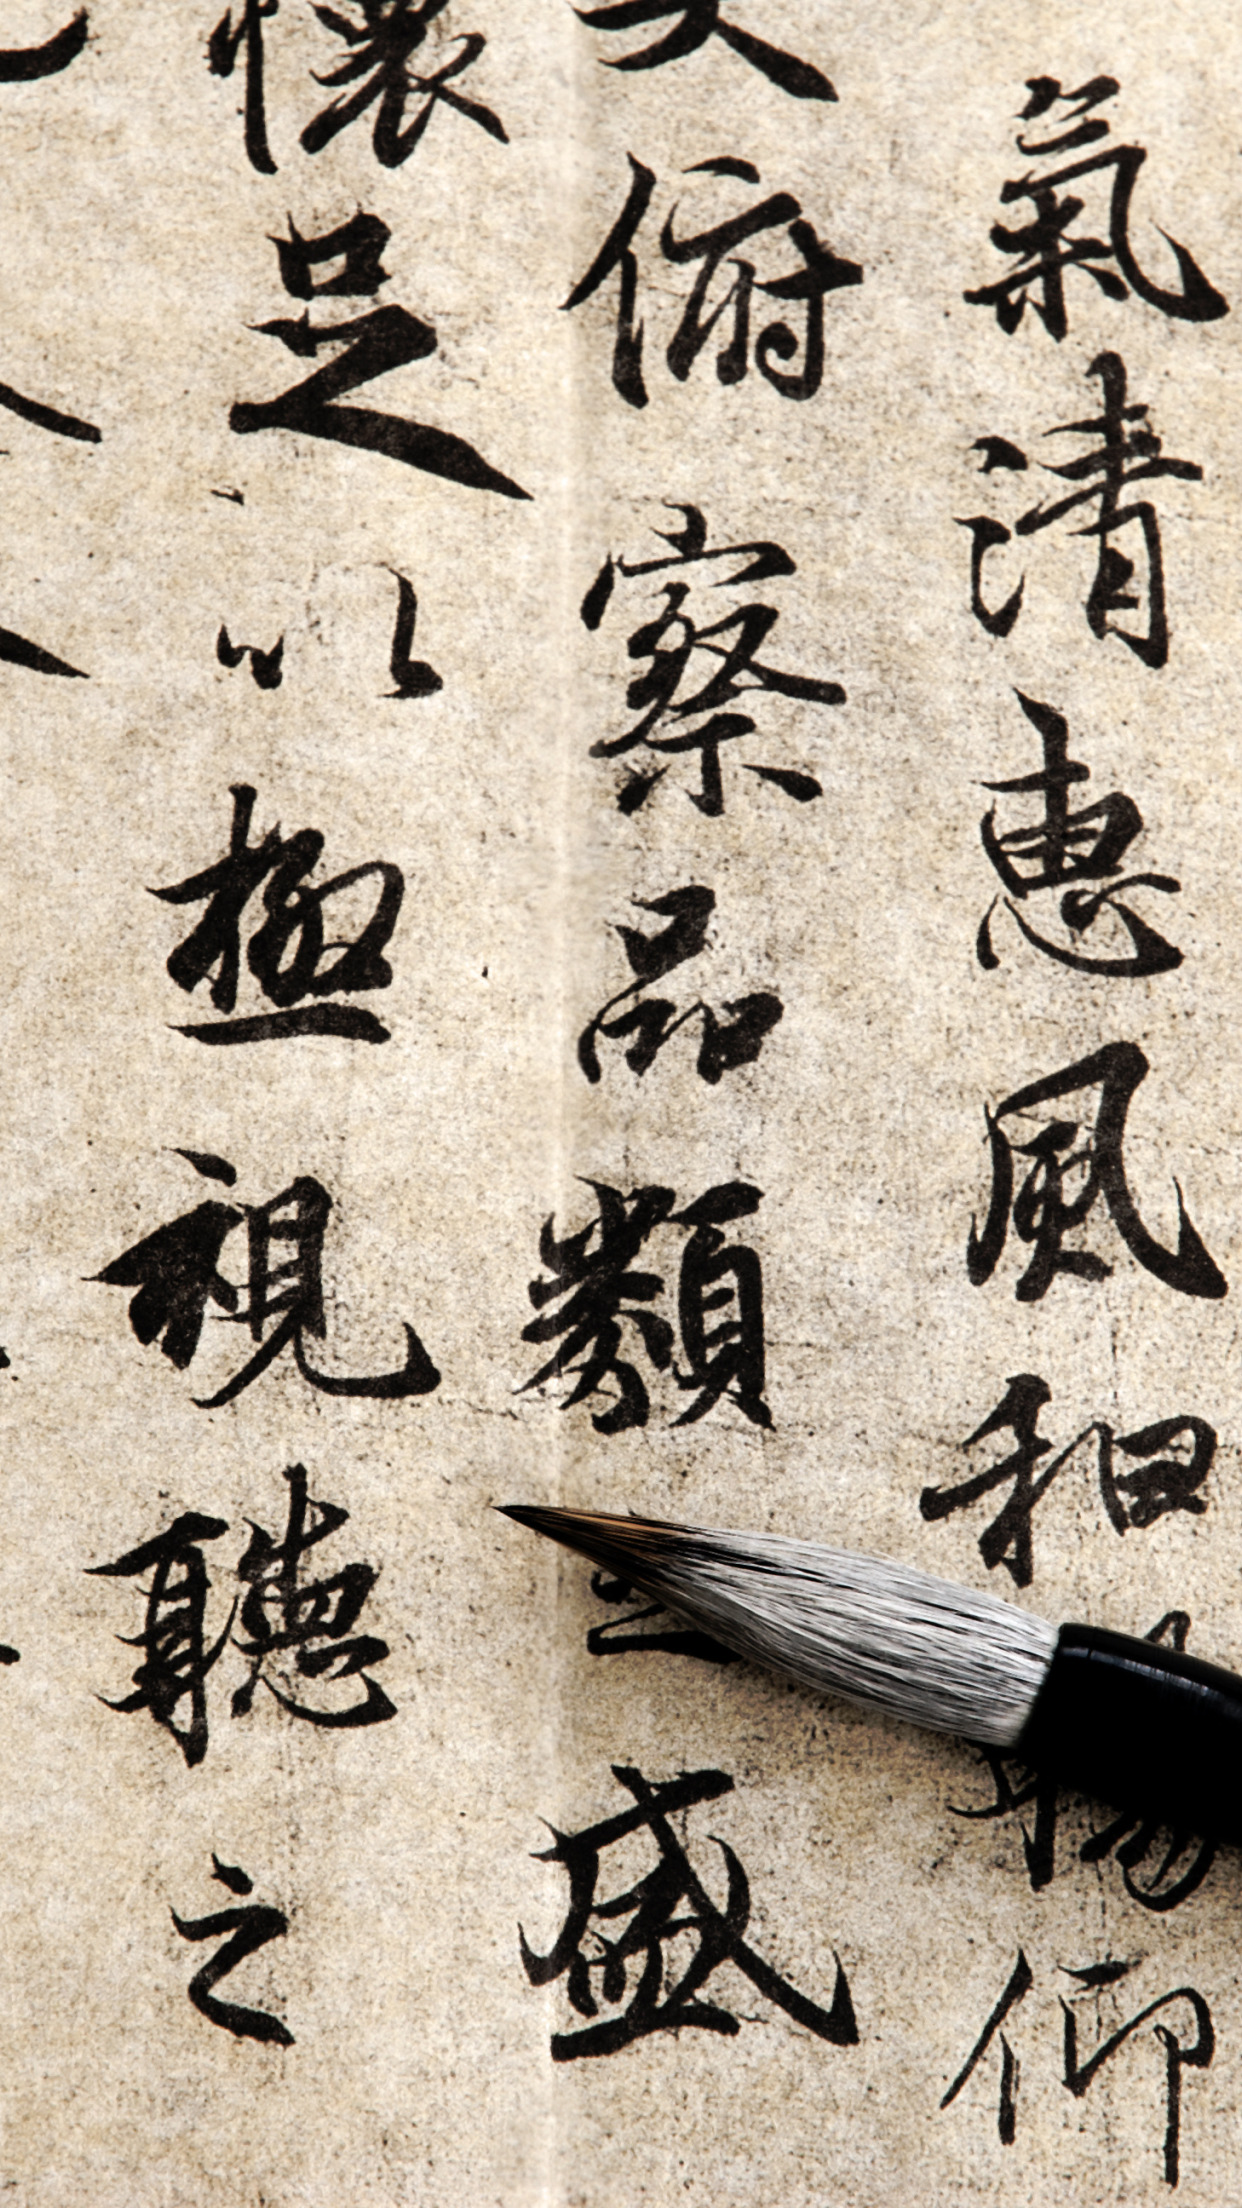 氣清惠風和暢仰
大俯察品類之盛
懷足以極視聽之